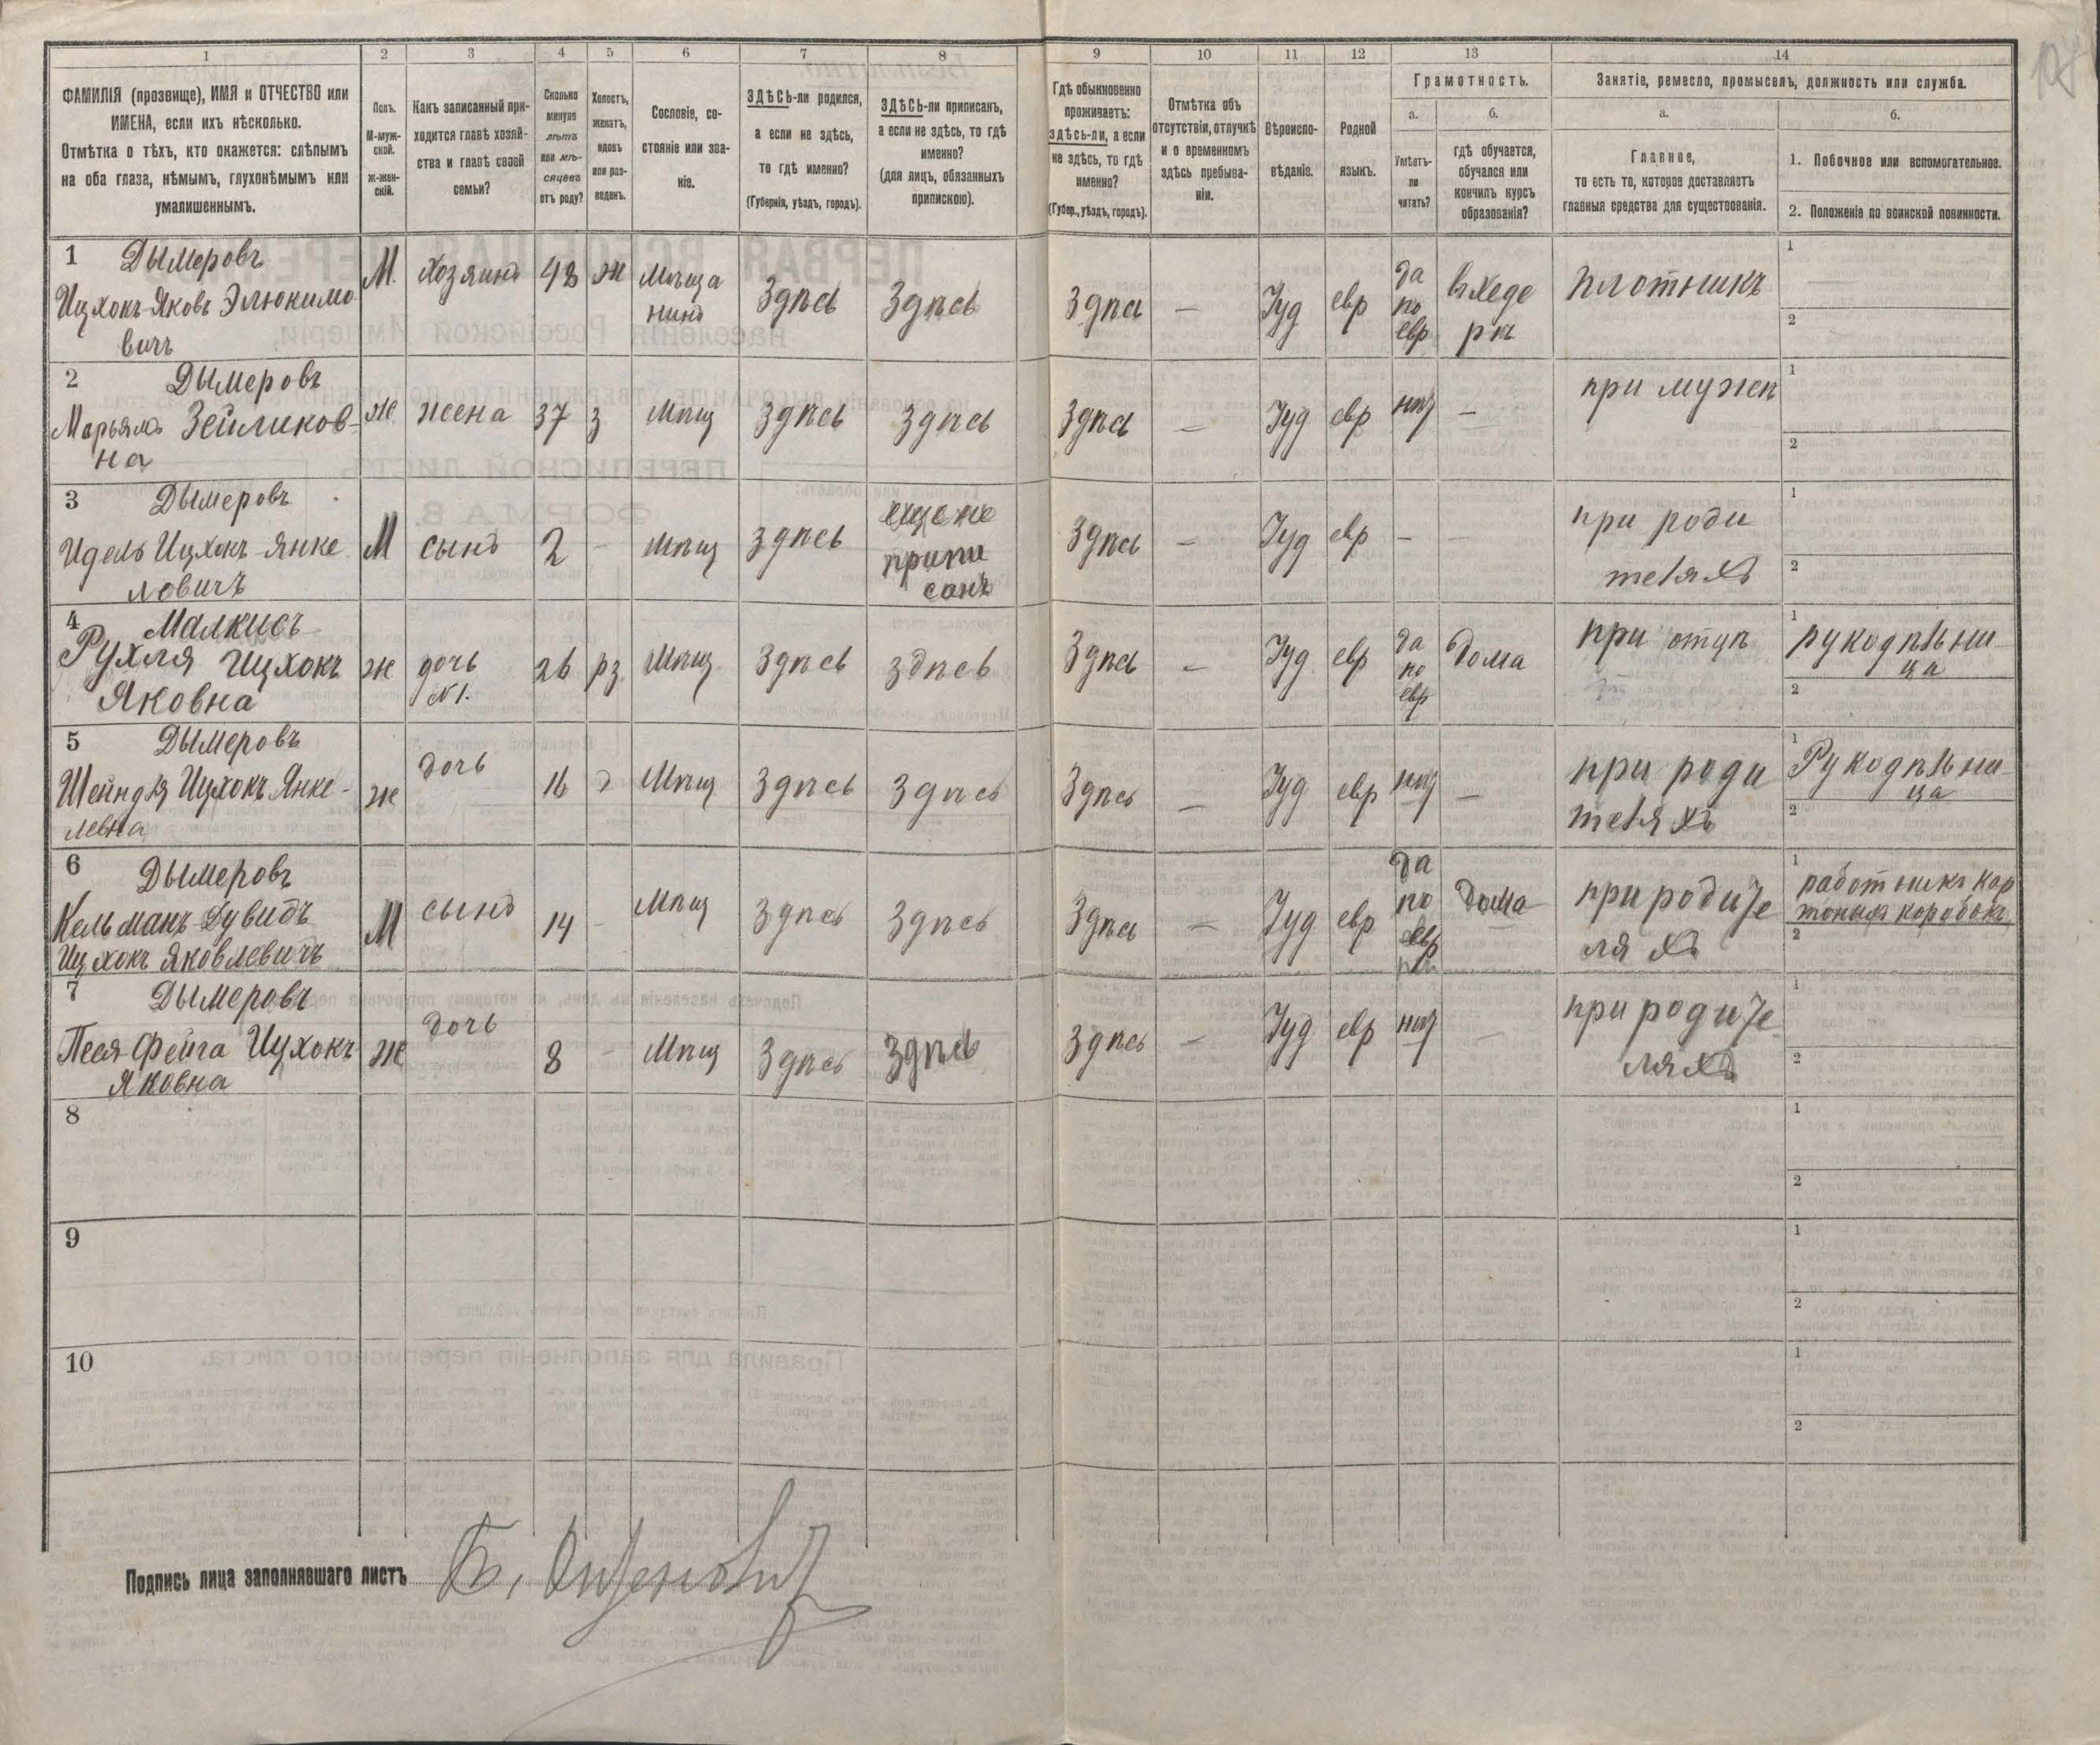 1 2 3 4 5 6 7 8 9 10 11 12 13 14
ФАМИЛІЯ (прозвище), ИМЯ и ОТЧЕСТВО или
ИМЕНА, если ихъ нѣсколько.
Отмѣтка о тѣхъ, кто окажется: слѣпымъ
на оба глаза, нѣмымъ, глухонѣмымъ или
умалишеннымъ.
Полъ.
М-муж-
ской.
ж-жен-
скій.
Какъ записанный при-
ходится главѣ хозяй-
ства и главѣ своей
семьи?
Сколько
минуло
лѣтъ
или мѣ-
сяцевъ
отъ роду?
Холостъ,
женатъ,
вдовъ
или раз-
веденъ.
Сословіе, со-
стояніе или зва-
ніе.
ЗДѢСЬ-ли родился,
а если не здѣсь,
то гдѣ именно?
(Губернія, уѣздъ, городъ).
ЗДѢСЬ-ли приписанъ,
а если не здѣсь, то гдѣ
именно?
(для лицъ, обязанныхъ
припискою).
Гдѣ обыкновенно
проживаетъ:
здѣсь-ли, а если
не здѣсь, то гдѣ
именно?
(Губер., уѣздъ, городъ).
Отмѣтка объ
отсутствіи, отлучкѣ
и о временномъ
здѣсь пребыва-
ніи.
Вѣроиспо-
вѣданіе.
Родной
языкъ.
Грамотность.
а.
Умѣетъ-
ли
читать?
б.
гдѣ обучается,
обучался или
кончилъ курсъ
образованія?
Занятіе, ремесло, промыселъ, должность или служба.
а.
Главное,
то есть то, которое доставляетъ
главныя средства для существованія.
б.
1. Побочное или вспомогательное.
2. Положеніе по воинской повинности.
1 Дымеровъ
Ицхокъ-Яковъ Элюкимо
вичъ
М. Хозяинъ 48 ж Мѣща
нинъ
Здѣсь Здѣсь Здѣсь — Іуд евр да
по
евр
въ хеде
рѣ
плотникъ
1
2
2 Дымеровъ
Марьямъ Зеймиков-
на
ж жена 37 з Мѣщ здѣсь здѣсь здѣсь — Іуд евр нѣт — при мужѣ
1
2
3 Дымеровъ
Идель Ицхокъ-Янке
ловичъ
М сынъ 2 - Мѣщ здѣсь еще не
припи
санъ
Здѣсь — Іуд евр — — при роди
теляхъ
1
2
4 Малкисъ
Рухля Ицхокъ
Яковна
ж дочь
№1.
26 рз Мѣщ Здѣсь здѣсь Здѣсь — Іуд евр да
по
евр
дома при отцѣ
1 рукодѣльни-
ца
2
5 Дымеровъ
Шейндля Ицхокъ Янке-
левна
ж дочь 16 д Мѣщ Здѣсь Здѣсь Здѣсь — Іуд евр нѣт — при роди
теляхъ
1 Рукодѣльни-
ца
2
6 Дымеровъ
Кельманъ-Дувидъ
Ицхокъ Яковлевичъ
М сынъ 14 - Мѣщ Здѣсь Здѣсь Здѣсь — Іуд евр да
по
евр
дома при родите
ляхъ
1 работникъ кар
тоных коробокъ
2
7 Дымеровъ
Песя-Фейга Ицхокъ
Яковна
ж дочь 8 - Мѣщ Здѣсь Здѣсь Здѣсь — Іуд евр нѣт — при родите
ляхъ
1
2
8
1
2
9
1
2
10
1
2
Подпись лица заполнявшаго листъ